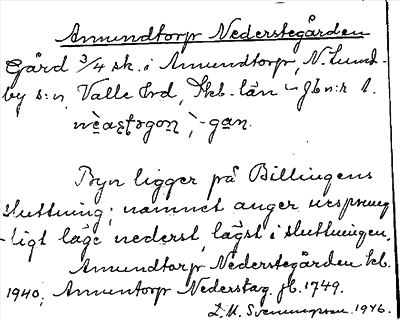 Amundtorp Nederstegården
Gård 3/4 sk. i Amundtorp, N. Lund-
by s:n, Valle hd, Skb. län - jb n:r 1.
-gan.
Byn ligger på Billingens
sluttning; namnet anger ursprung-
ligt läge nederst, lägst i sluttningen.
Amundtorp Nederstegården kb.
1940; Amuntorp Nederstag. jb. 1749.
L. M. Svenungsson. 1946.